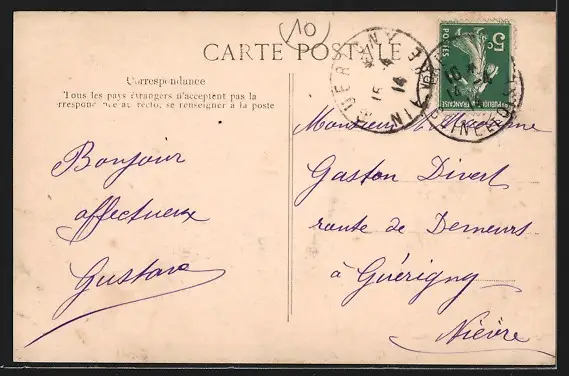 10
CARTE POSTALE
Correspondance
Tous les pays étrangers n'acceptent pas la
correspondance au recto, se renseigner à la poste
5c
POSTES
REPUBLIQUE FRANÇAISE
Bonjour
affectueux
Gustave
Monsieur & Madame
Gaston Divert
route de Demeurs
à Guérigny
Nièvre